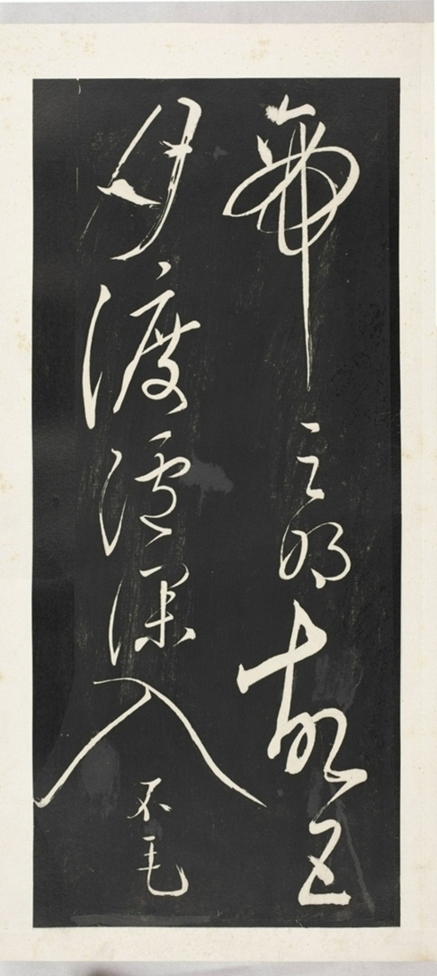 帝之明故五
月渡瀘深入不毛